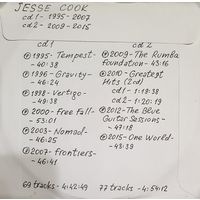 JESSE COOK
cd 1 - 1995 - 2007
cd 2 - 2009 - 2015
cd 1
1995 - Tempest -
- 40:38
1996 - Gravity -
- 46:24
1998 - Vertigo -
- 49:38
2000 - Free Fall -
- 53:01
2003 - Nomad -
- 46:25
2007 - Frontiers -
- 46:41
69 tracks - 4:42:49
cd 2
2009 - The Rumba
foundation - 43:16
2010 - Greatest
Hits (2cd)
cd1 - 1:19:38
cd2 - 1:20:19
2012 - The Blue
Guitar Sessions -
- 47:18
2015 - One World -
- 43:39
77 tracks - 4:54:12